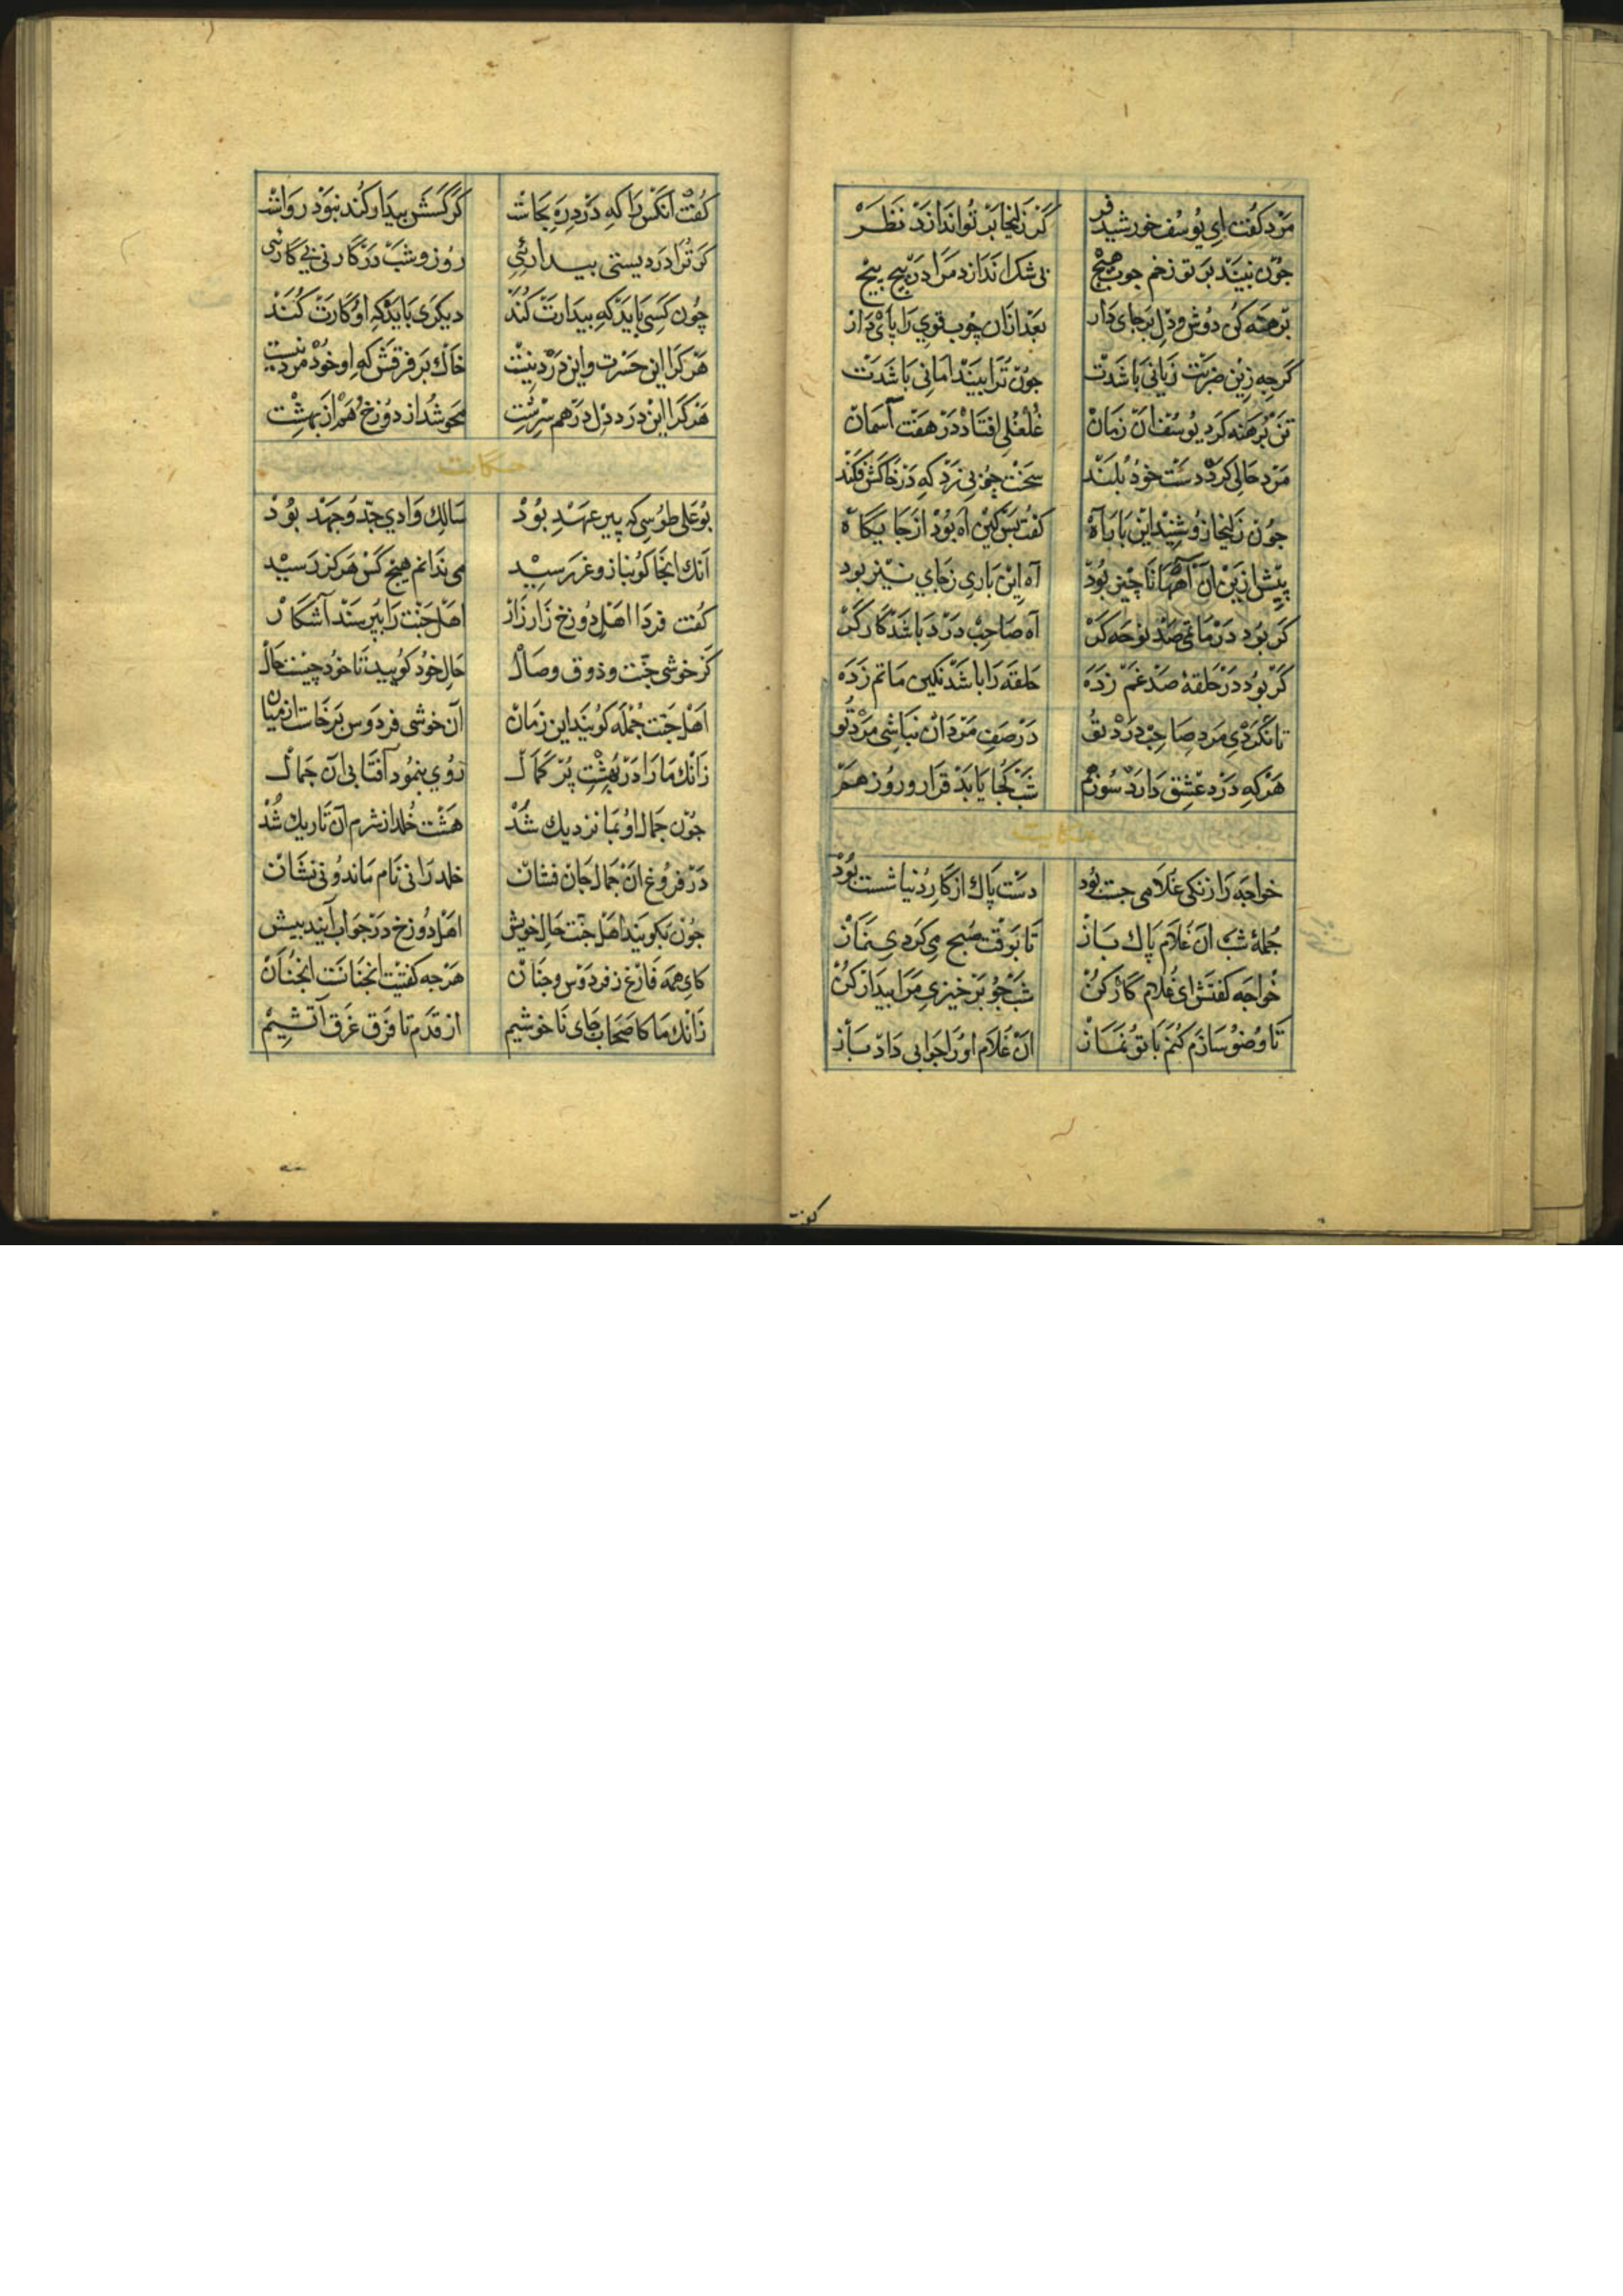 مرد گفت ای یوسف خورشید فر گر زلیخا بر تو اندازد نظر
چون نبیند بر تو زخم چوب هیچ بی شک اندازد مرا در پیچ پیچ
برهنه کن دوش و دل بر جای دار بعد ازان چوب قوی را پای دار
گرچه زین ضربت زیانی باشدت چون ترا بیند امانی باشدت
تن برهنه کرد یوسف آن زمان غلغلی افتاد در هفت آسمان
مرد حالی کرد دست خود بلند سخت چوبی زد که در خاکش فکند
چون زلیخا زو شنید این بار آه گفت بس کین آه بود از جایگاه
پیش ازین آن آهها ناچیز بود آه این باری ز جای نیز بود
گر بود در ماتمی صد نوحه گر آه صاحب درد باشد کارگر
گر بود در حلقهٔ صد غم زده حلقه را باشد نگین ماتم زده
تا نگردی مرد صاحب درد تو در صف مردان نباشی مرد تو
هر که درد عشق دارد سوز هم شب کجا یابد قرار و روز هم
حکایت
خواجه را زنگی غلامی چست بود دست پاک از کار دنیا شست بود
جملهٔ شب آن غلام پاک باز تا بوقت صبح می کردی نماز
خواجه گفتش ای غلام کارکن شب چو برخیزی مرا بیدار کن
تا وضو سازم کنم با تو نماز آن غلام او را جوابی داد باز
گفت
گفت آنکس را که درد ره بخاست گر کسش بیدار کند نبود رواست
گر ترا دردیستی بیدارئی روز و شب در کار نی بی کارئی
چون کسی باید که بیدارت کند دیگری باید که او کارت کند
هر کرا این حسرت و این درد نیست خاک بر فرقش که او خود مرد نیست
هر کرا این درد دل درهم سرشت محو شد از دوزخ و هم از بهشت
حکایت
بوعلی طوسی که پیر عهد بود سالک وادی جد و جهد بود
آنک آنجا کو بناز و عز رسید می ندانم هیچ کس هرگز رسید
گفت فردا اهل دوزخ زار زار اهل جنت را بپرسند آشکار
کز خوشی جنت و ذوق وصال حال خود گویید تا خود چیست حال
اهل جنت جمله گویند این زمان آن خوشی فردوس برخاست از میان
زانک ما را در بهشت پر کمال روی بنمود آفتابی آن جمال
چون جمال او بما نزدیک شد هشت خلد از شرم آن تاریک شد
در فروغ آن جمال جان فشان خلد را نی نام ماند و نی نشان
چون بگویند اهل جنت حال خویش اهل دوزخ در جواب آیند بیش
کای همه فارغ ز فردوس و جنان هرچه گفتیت آنچنانست آنچنان
زانک ما کاصحاب جای ناخوشیم از قدم تا فرق غرق آتشیم